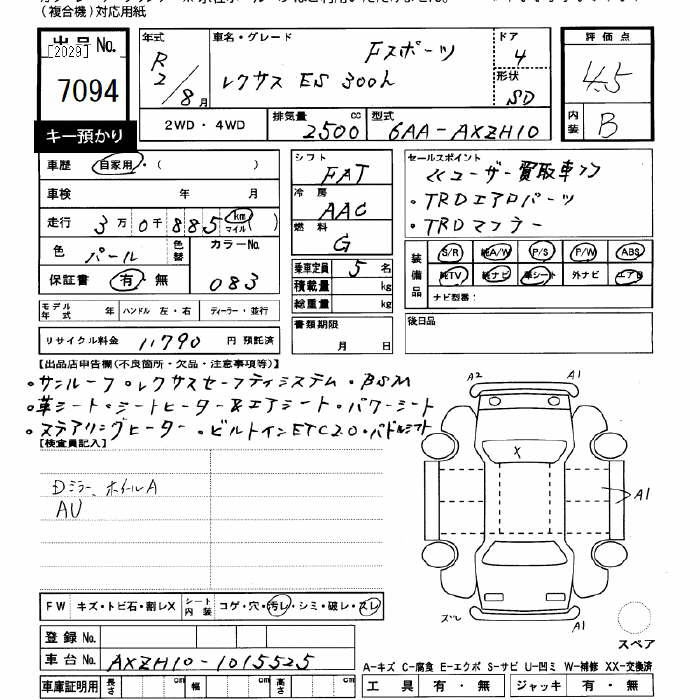 (複合機)対応用紙
出品 No.
[2029]
7094
キー預かり
年式
R2/8月
車名・グレード
Fスポーツ
レクサス ES 300h
ドア
4
形状
SD
評価点
4.5
内装
B
2WD・4WD
排気量
2500 cc
型式
6AA-AXZH10
車歴 自家用・( )
車検 年 月
走行 3万0千885 km マイル ( )
色 パール
色替
カラーNo.
083
保証書 有・無
シフト
FAT
冷房
AAC
燃料
G
乗車定員 5 名
積載量 kg
総重量 kg
セールスポイント
<<ユーザー買取車>>
・TRDエアロパーツ
・TRDマフラー
装備品
S/R 純A/W P/S P/W ABS
純TV 純ナビ 革シート 外ナビ エアB
ナビ型番:
モデル年式 年
ハンドル 左・右
ディーラー・並行
リサイクル料金 11790 円 預託済
書類期限
月 日
後日品
【出品店申告欄(不良箇所・欠品・注意事項等)】
・サンルーフ・レクサスセーフティシステム・BSM
・革シート・シートヒーター&エアシート・パワーシート
・ステアリングヒーター・ビルトインETC2.0・パドルシフト
【検査員記入】
Dミラー、ホイールA
AU
A2
A1
X
A1
ズレ
A1
スペア
FW キズ・トビ石・割レX
シート内装
コゲ・穴・汚レ・シミ・破レ・スレ
登録 No.
車台 No. AXZH10-1015525
車庫証明用 長さ cm 幅 cm 高さ cm
A-キズ C-腐食 E-エクボ S-サビ U-凹ミ W-補修 XX-交換済
工具 有・無 ジャッキ 有・無